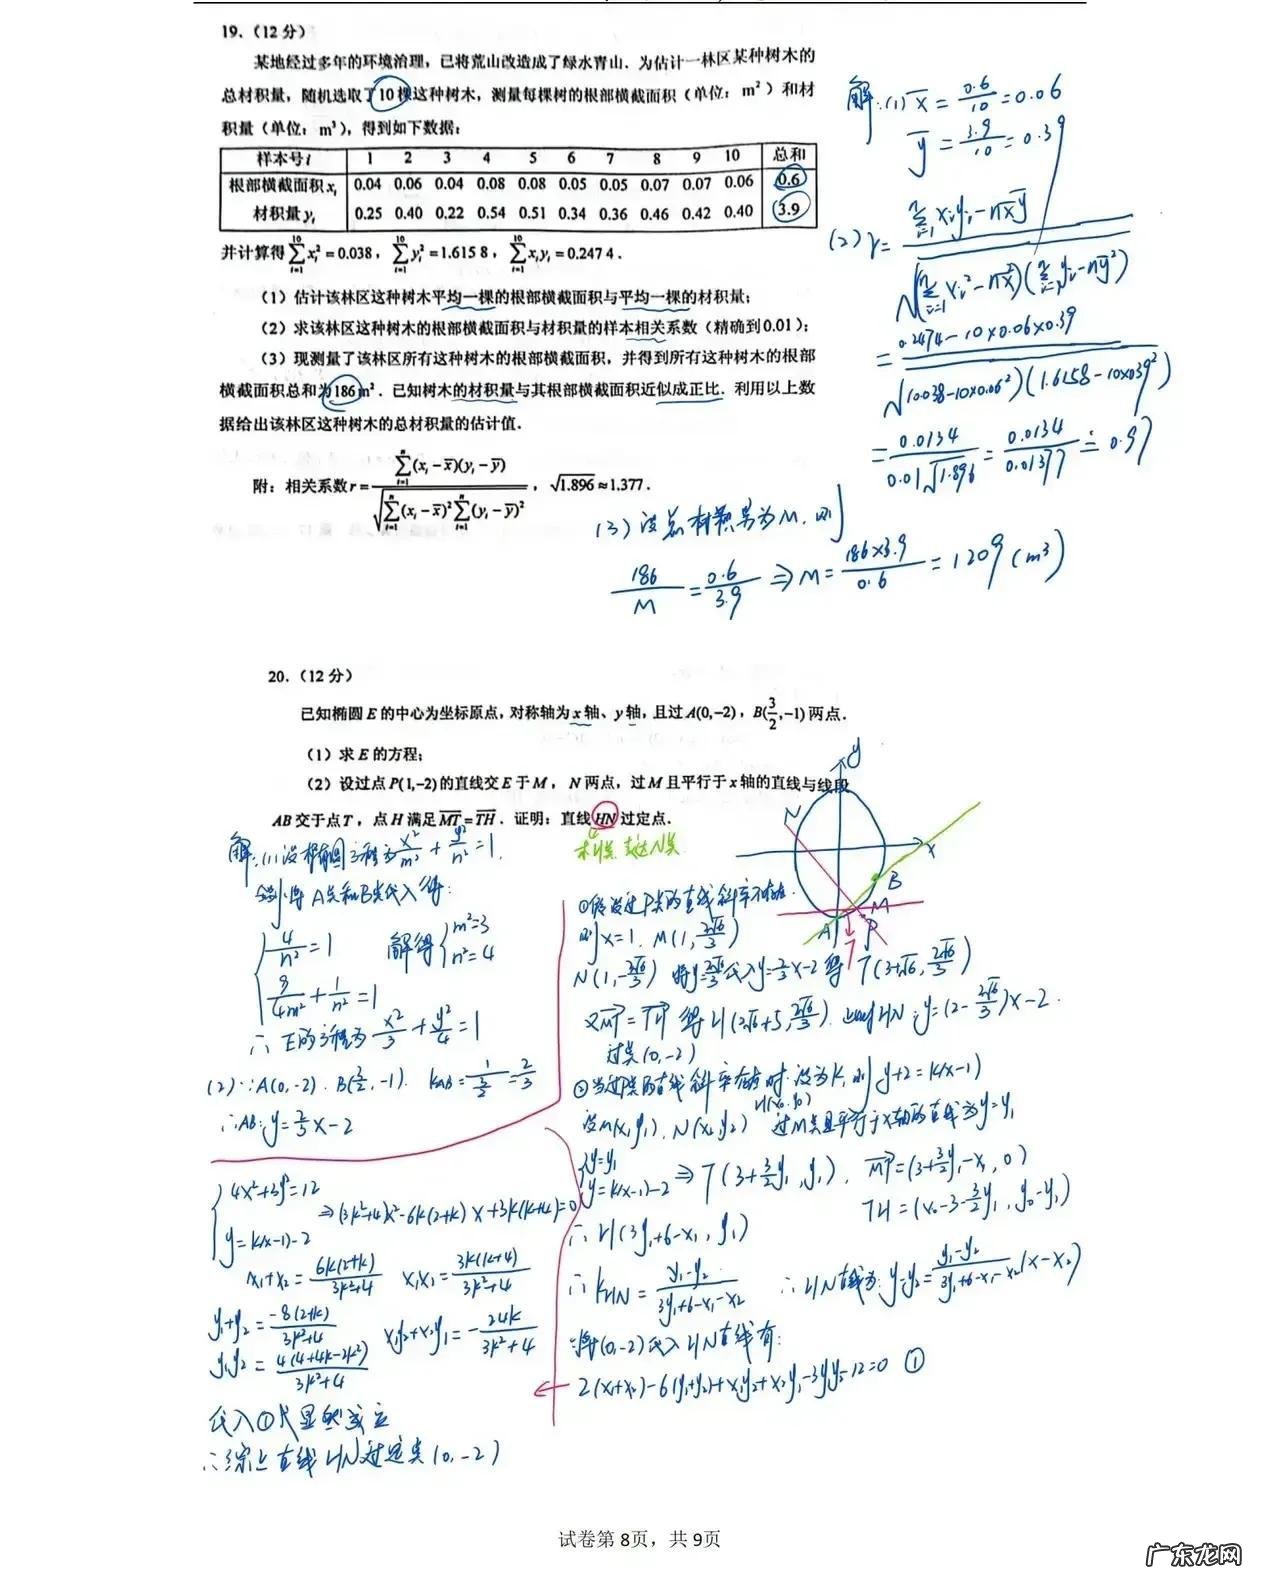 19.（12 分）
某地经过多年的环境治理，已将荒山改造成了绿水青山．为估计一林区某种树木的
总材积量，随机选取了10棵这种树木，测量每棵树的根部横截面积（单位：m²）和材
积量（单位：m³），得到如下数据：
样本号 i 1 2 3 4 5 6 7 8 9 10 总和
根部横截面积 xᵢ 0.04 0.06 0.04 0.08 0.08 0.05 0.05 0.07 0.07 0.06 0.6
材积量 yᵢ 0.25 0.40 0.22 0.54 0.51 0.34 0.36 0.46 0.42 0.40 3.9
并计算得 ∑(i=1→10) xᵢ² = 0.038，∑(i=1→10) yᵢ² = 1.6158，∑(i=1→10) xᵢyᵢ = 0.2474．
（1）估计该林区这种树木平均一棵的根部横截面积与平均一棵的材积量；
（2）求该林区这种树木的根部横截面积与材积量的样本相关系数（精确到0.01）；
（3）现测量了该林区所有这种树木的根部横截面积，并得到所有这种树木的根部
横截面积总和为186m²．已知树木的材积量与其根部横截面积近似成正比．利用以上数
据给出该林区这种树木的总材积量的估计值．
附：相关系数 r = ∑(i=1→n)(xᵢ−x̄)(yᵢ−ȳ) / √(∑(i=1→n)(xᵢ−x̄)²∑(i=1→n)(yᵢ−ȳ)²)，√1.896≈1.377．
解：(1) x̄ = 0.6/10 = 0.06
ȳ = 3.9/10 = 0.39
(2) r = (∑(i=1→n) xᵢyᵢ − nx̄ȳ) / √((∑(i=1→n) xᵢ² − nx̄²)(∑(i=1→n) yᵢ − nȳ²))
= (0.2474−10×0.06×0.39) / √((0.038−10×0.06²)(1.6158−10×0.39²))
= 0.0134/(0.01√1.896) = 0.0134/0.01377 ≐ 0.97
(3) 设总材积量为M，则
186/M = 0.6/3.9 ⇒ M = 186×3.9/0.6 = 1209 (m³)
20.（12 分）
已知椭圆 E 的中心为坐标原点，对称轴为 x 轴、y 轴，且过 A(0,−2)，B(3/2,−1) 两点．
（1）求 E 的方程；
（2）设过点 P(1,−2) 的直线交 E 于 M，N 两点，过 M 且平行于 x 轴的直线与线段
AB 交于点 T，点 H 满足 MT = TH．证明：直线 HN 过定点．
y
N
x
B
M
A
T
P
解：(1) 设椭圆方程为 x²/m² + y²/n² = 1.
分别将A点和B点代入得：
{ 4/n² = 1
9/4m² + 1/n² = 1
解得 { m²=3
n²=4
∴ E的方程为 x²/3 + y²/4 = 1
(2) ∵A(0,−2)．B(3/2,−1)．k_AB = 1/(3/2) = 2/3
∴AB：y = 2/3 x − 2
①假设过P点的直线斜率不存在．
则 x=1．M(1, 2√6/3)
N(1, −2√6/3) 将y=2√6/3代入y=2/3x−2得 T(3+√6, 2√6/3)
又MT = TH 得 H(2√6+5, 2√6/3)．此时HN：y=(2−2√6/3)x−2．
过点(0,−2)
②当过P点的直线斜率存在时．设为k，则 y+2=k(x−1)
设M(x₁,y₁)．N(x₂,y₂) H(x₀,y₀) 过M点且平行于x轴的直线为y=y₁
{ y=y₁
y=k(x−1)−2 ⇒ T(3+3/2y₁, y₁)．MT=(3+3/2y₁−x₁, 0)
TH=(x₀−3−3/2y₁, y₀−y₁)
∴ H(3y₁+6−x₁, y₁)
∴ k_HN = (y₁−y₂)/(3y₁+6−x₁−x₂) ∴ HN直线为：y−y₂ = (y₁−y₂)/(3y₁+6−x₁−x₂) (x−x₂)
将(0,−2)代入HN直线有：
2(x₁+x₂)−6(y₁+y₂)+x₁y₂+x₂y₁−3y₁y₂−12=0 ①
{ 4x²+3y²=12
y=k(x−1)−2 ⇒(3k²+4)x²−6k(2+k)x+3k(k+4)=0
x₁+x₂ = 6k(2+k)/(3k²+4) x₁x₂ = 3k(k+4)/(3k²+4)
y₁+y₂ = −8(2+k)/(3k²+4) x₁y₂+x₂y₁ = −24k/(3k²+4)
y₁y₂ = 4(4+4k−2k²)/(3k²+4)
代入①式显然成立
∴综上直线HN过定点(0,−2)
试卷第 8页，共 9页
广东龙网